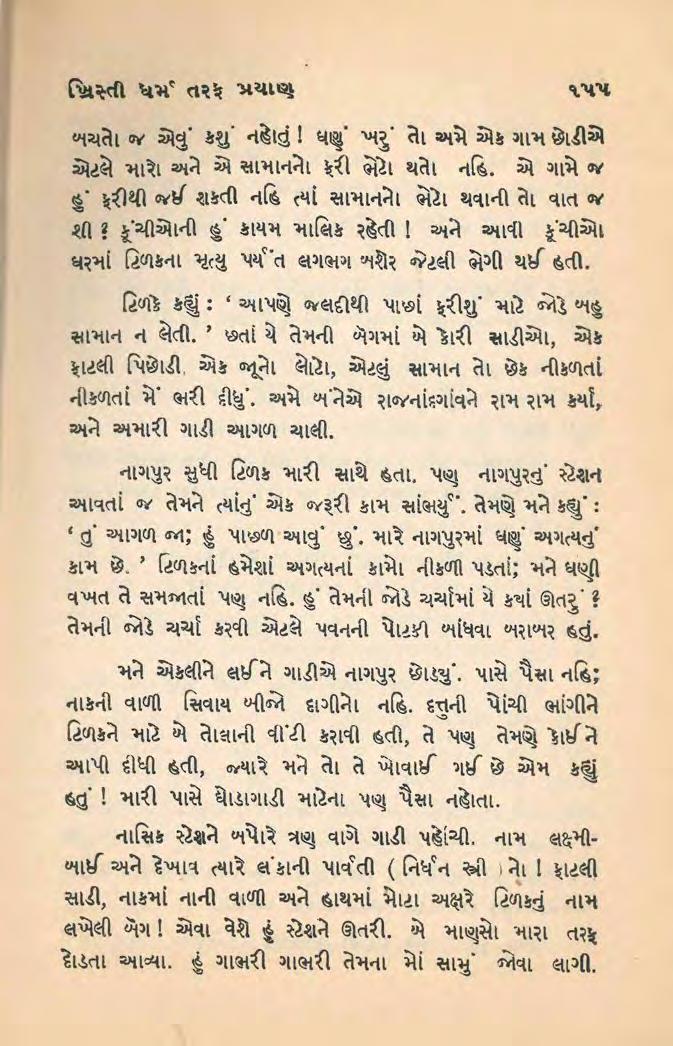 ખ્રિસ્તી ધર્મ તરફ પ્રયાણ ૧૫૫
બચતો જ એવું કશું નહોતું! ઘણું ખરું તો અમે એક ગામ છોડીએ
એટલે મારો અને એ સામાનનો ફરી ભેટો થતો નહિ. એ ગામે જ
હું ફરીથી જઈ શકતી નહિ ત્યાં સામાનનો ભેટો થવાની તો વાત જ
શી? કૂંચીઓની હું કાયમ માલિક રહેતી! અને આવી કૂંચીઓ
ઘરમાં ટિળકના મૃત્યુ પર્યંત લગભગ બશેર જેટલી ભેગી થઈ હતી.
ટિળકે કહ્યું: ‘આપણે જલદીથી પાછાં ફરીશું માટે જોડે બહુ
સામાન ન લેતી.’ છતાં યે તેમની બૅગમાં બે કોરી સાડીઓ, એક
ફાટલી પિછોડી, એક જૂનો લોટો, એટલું સામાન તો છેક નીકળતાં
નીકળતાં મેં ભરી દીધું. અમે બંનેએ રાજનાંદગાંવને રામ રામ કર્યા,
અને અમારી ગાડી આગળ ચાલી.
નાગપુર સુધી ટિળક મારી સાથે હતા. પણ નાગપુરનું સ્ટેશન
આવતાં જ તેમને ત્યાંનું એક જરૂરી કામ સાંભર્યું. તેમણે મને કહ્યું:
‘તું આગળ જા; હું પાછળ આવું છું. મારે નાગપુરમાં ઘણું અગત્યનું
કામ છે.’ ટિળકનાં હમેશાં અગત્યનાં કામો નીકળી પડતાં; મને ઘણી
વખત તે સમજાતાં પણ નહિ. હું તેમની જોડે ચર્ચામાં યે કયાં ઊતરું?
તેમની જોડે ચર્ચા કરવી એટલે પવનની પોટકી બાંધવા બરાબર હતું.
મને એકલીને લઈને ગાડીએ નાગપુર છોડયું. પાસે પૈસા નહિ;
નાકની વાળી સિવાય બીજો દાગીનો નહિ. દત્તુની પોંચી ભાંગીને
ટિળકને માટે બે તોલાની વીંટી કરાવી હતી, તે પણ તેમણે કોઈને
આપી દીધી હતી, જ્યારે મને તો તે ખોવાઈ ગઈ છે એમ કહ્યું
હતું! મારી પાસે ઘોડાગાડી માટેના પણ પૈસા નહોતા.
નાસિક સ્ટેશને બપોરે ત્રણ વાગે ગાડી પહોંચી. નામ લક્ષ્મી-
બાઈ અને દેખાવ ત્યારે લંકાની પાર્વતી (નિર્ધન સ્ત્રી)નો! ફાટલી
સાડી, નાકમાં નાની વાળી અને હાથમાં મોટા અક્ષરે ટિળકનું નામ
લખેલી બૅગ! એવા વેશે હું સ્ટેશને ઊતરી. બે માણસો મારા તરફ
દોડતા આવ્યા. હું ગાભરી ગાભરી તેમના મોં સામું જોવા લાગી.